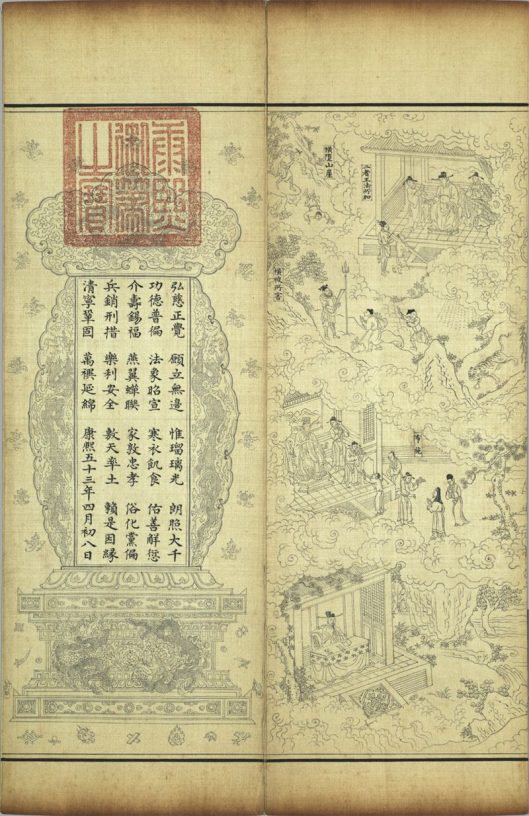 橫墮山崖
弘慈正覺 願立無邊 惟瑠璃光 朗照大千
功德普徧 法象昭宣 寒衣飢食 佑善解愆
介壽錫福 燕翼蟬聯 家敦忠孝 俗化黨偏
兵銷刑措 樂利安全 敷天率土 賴是因緣
清寧鞏固 萬禩延綿 康熙五十三年四月初八日
康熙御筆之寶